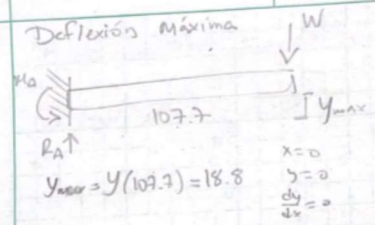 Deflexión Máxima
W
M_A
107.7
y_max
R_A↑
x=0
y_max = y(107.7) = 18.8
y=0
dy/dx = 0